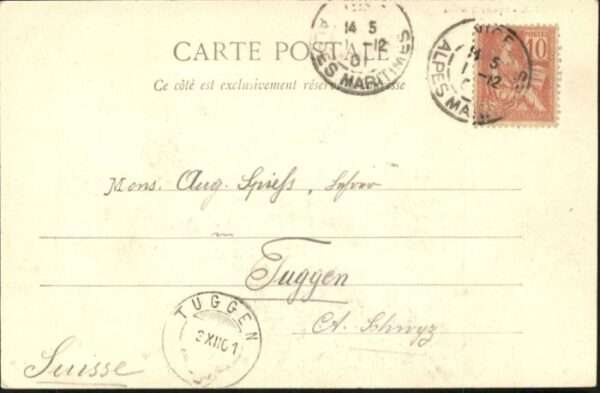 CARTE POSTALE
Ce côté est exclusivement réservé à l'adresse
NICE
14 5
1 -12
01
ALPES MARITIMES
NICE
14 5
1 -12
ALPES MARIT
POSTES
10
Mons. Aug. Spiess, Lehrer
in
Tuggen
Ct. Schwyz
TUGGEN
3 XII 01
Suisse